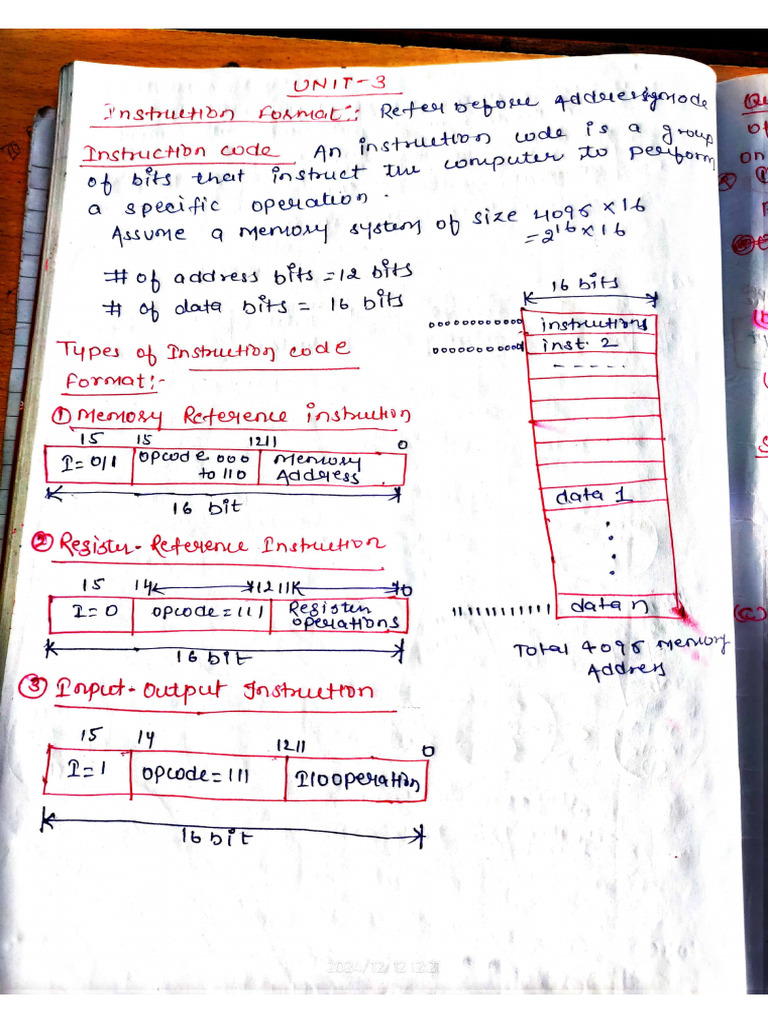 UNIT-3
Instruction Format:: Refer before Addressing mode
Instruction code An instruction code is a group
of bits that instruct the computer to perform
a specific operation.
Assume a memory system of size 4096 × 16
= 2^16 × 16
# of address bits = 12 bits
# of data bits = 16 bits
Types of Instruction code
Format:-
① Memory Reference instruction
15 15 1211 0
I= 0/1 opcode 000 to 110 Memory Address
16 bit
② Register-Reference Instruction
15 14 12 11 0
I=0 opcode=111 Register operations
16 bit
③ Input-Output Instruction
15 14 1211 0
I=1 opcode=111 I/O operation
16 bit
16 bits
000000000000 instructions
000000000000 inst. 2
- - - - -
data 1
111111111111 data n
Total 4096 Memory
Address
2024/12/12 12:21